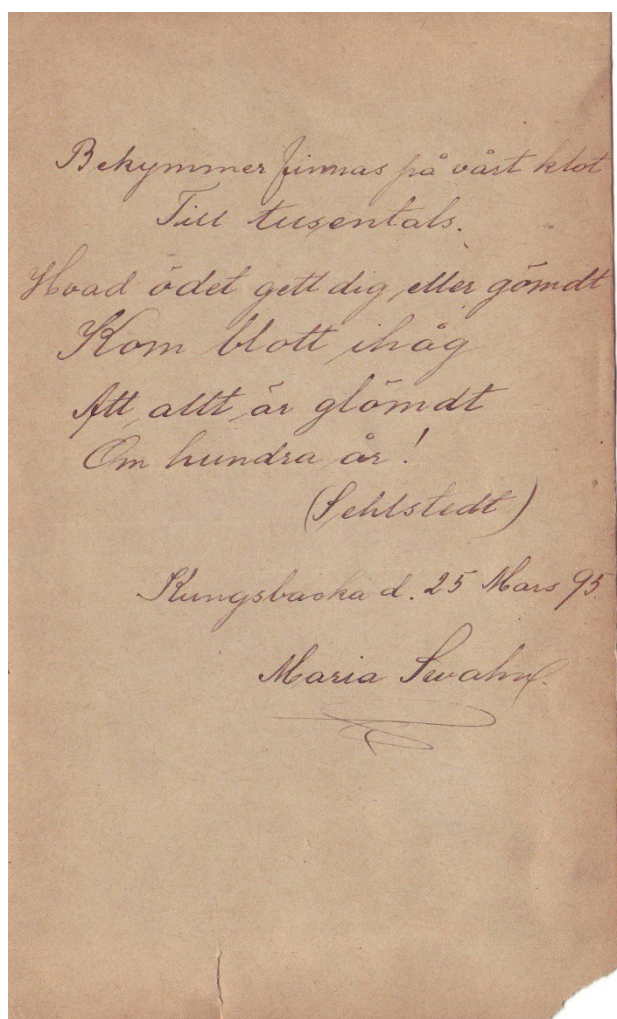 Bekymmer finnas på vårt klot
Till tusentals.
Hvad ödet gett dig eller gömdt
Kom blott ihåg
Att allt är glömdt
Om hundra år!
(Sehlstedt)
Kungsbacka d. 25 Mars 95.
Maria Swahn.